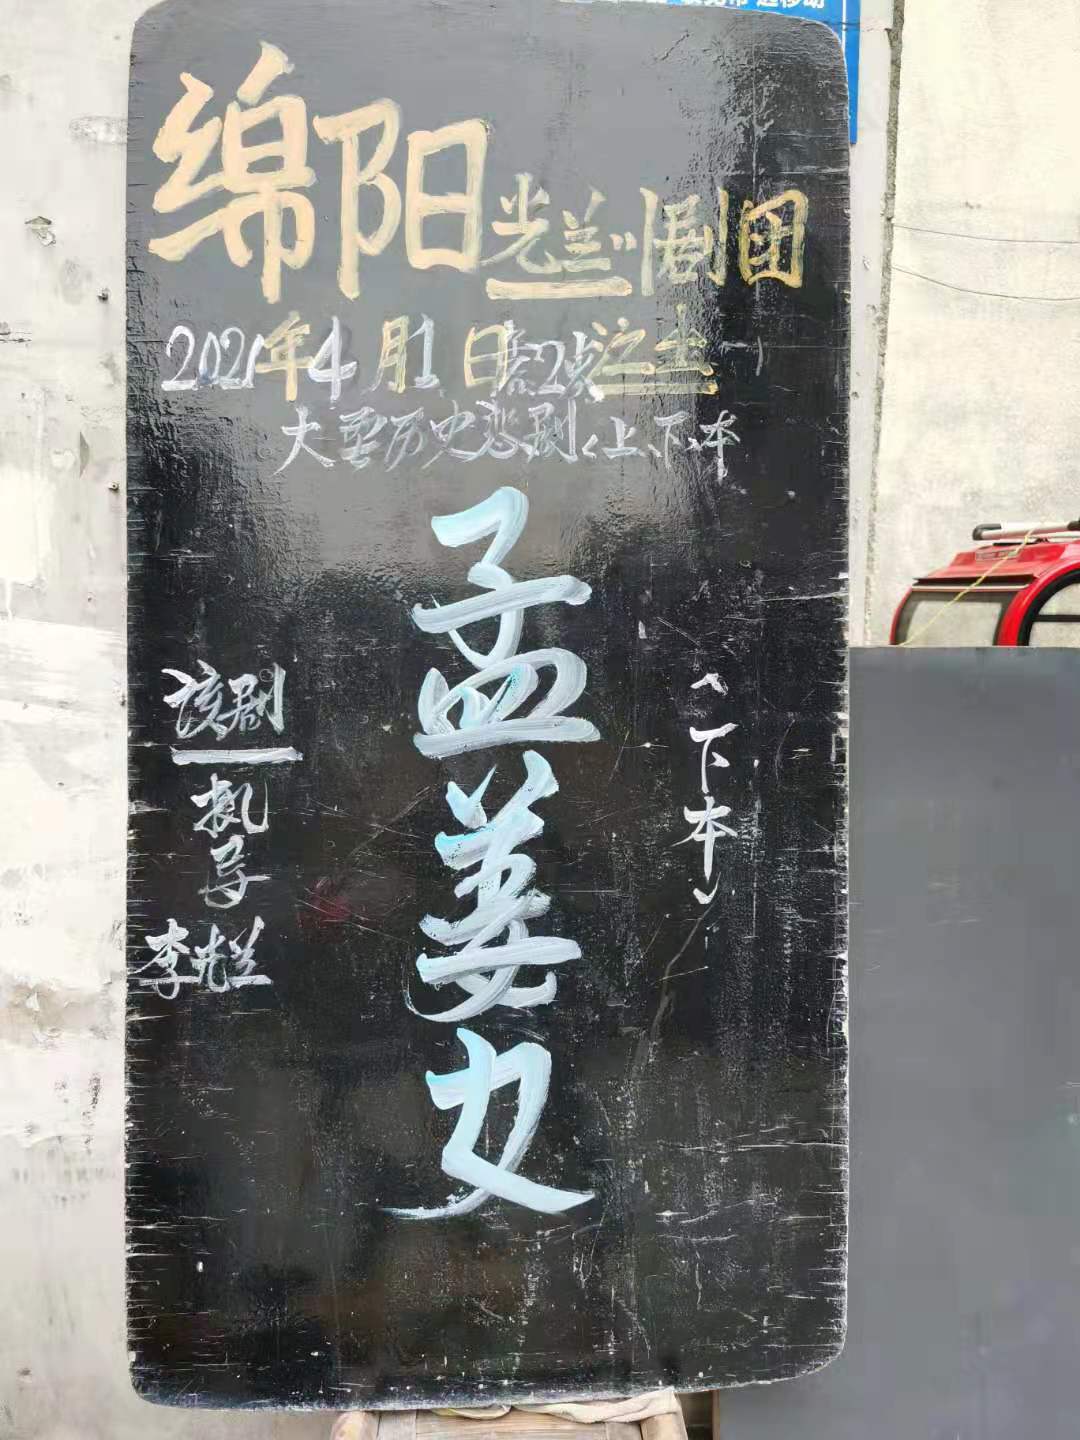 绵阳光兰川剧团
2021年4月1日准2点之出
大型历史悲剧〈上、下本
孟姜女
〈下本〉
该剧
执
导
李光兰